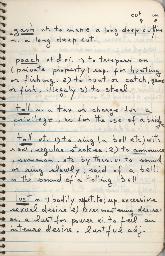 cut in
gash vt to make a long deep cut
n. a long deep cut.
poach vt & vi. 1) to trespass on
(private property) esp. for hunting
or fishing. 2) to hunt or catch, game
or fish, illegally 3) to steal
toll n a tax or charge for a
privilege, as for the use of a bridge
toll vt. 1) to ring (a bell etc) with
slow, regular strokes. 2) to announce
summon etc by this. vi. to sound
or ring slowly: said of a bell.
n the sound of a tolling bell.
lust n 1) bodily appetite; esp. excessive
sexual desire 2) overmastering desire
as a lust for power vi to feel an
intense desire. lustful adj.